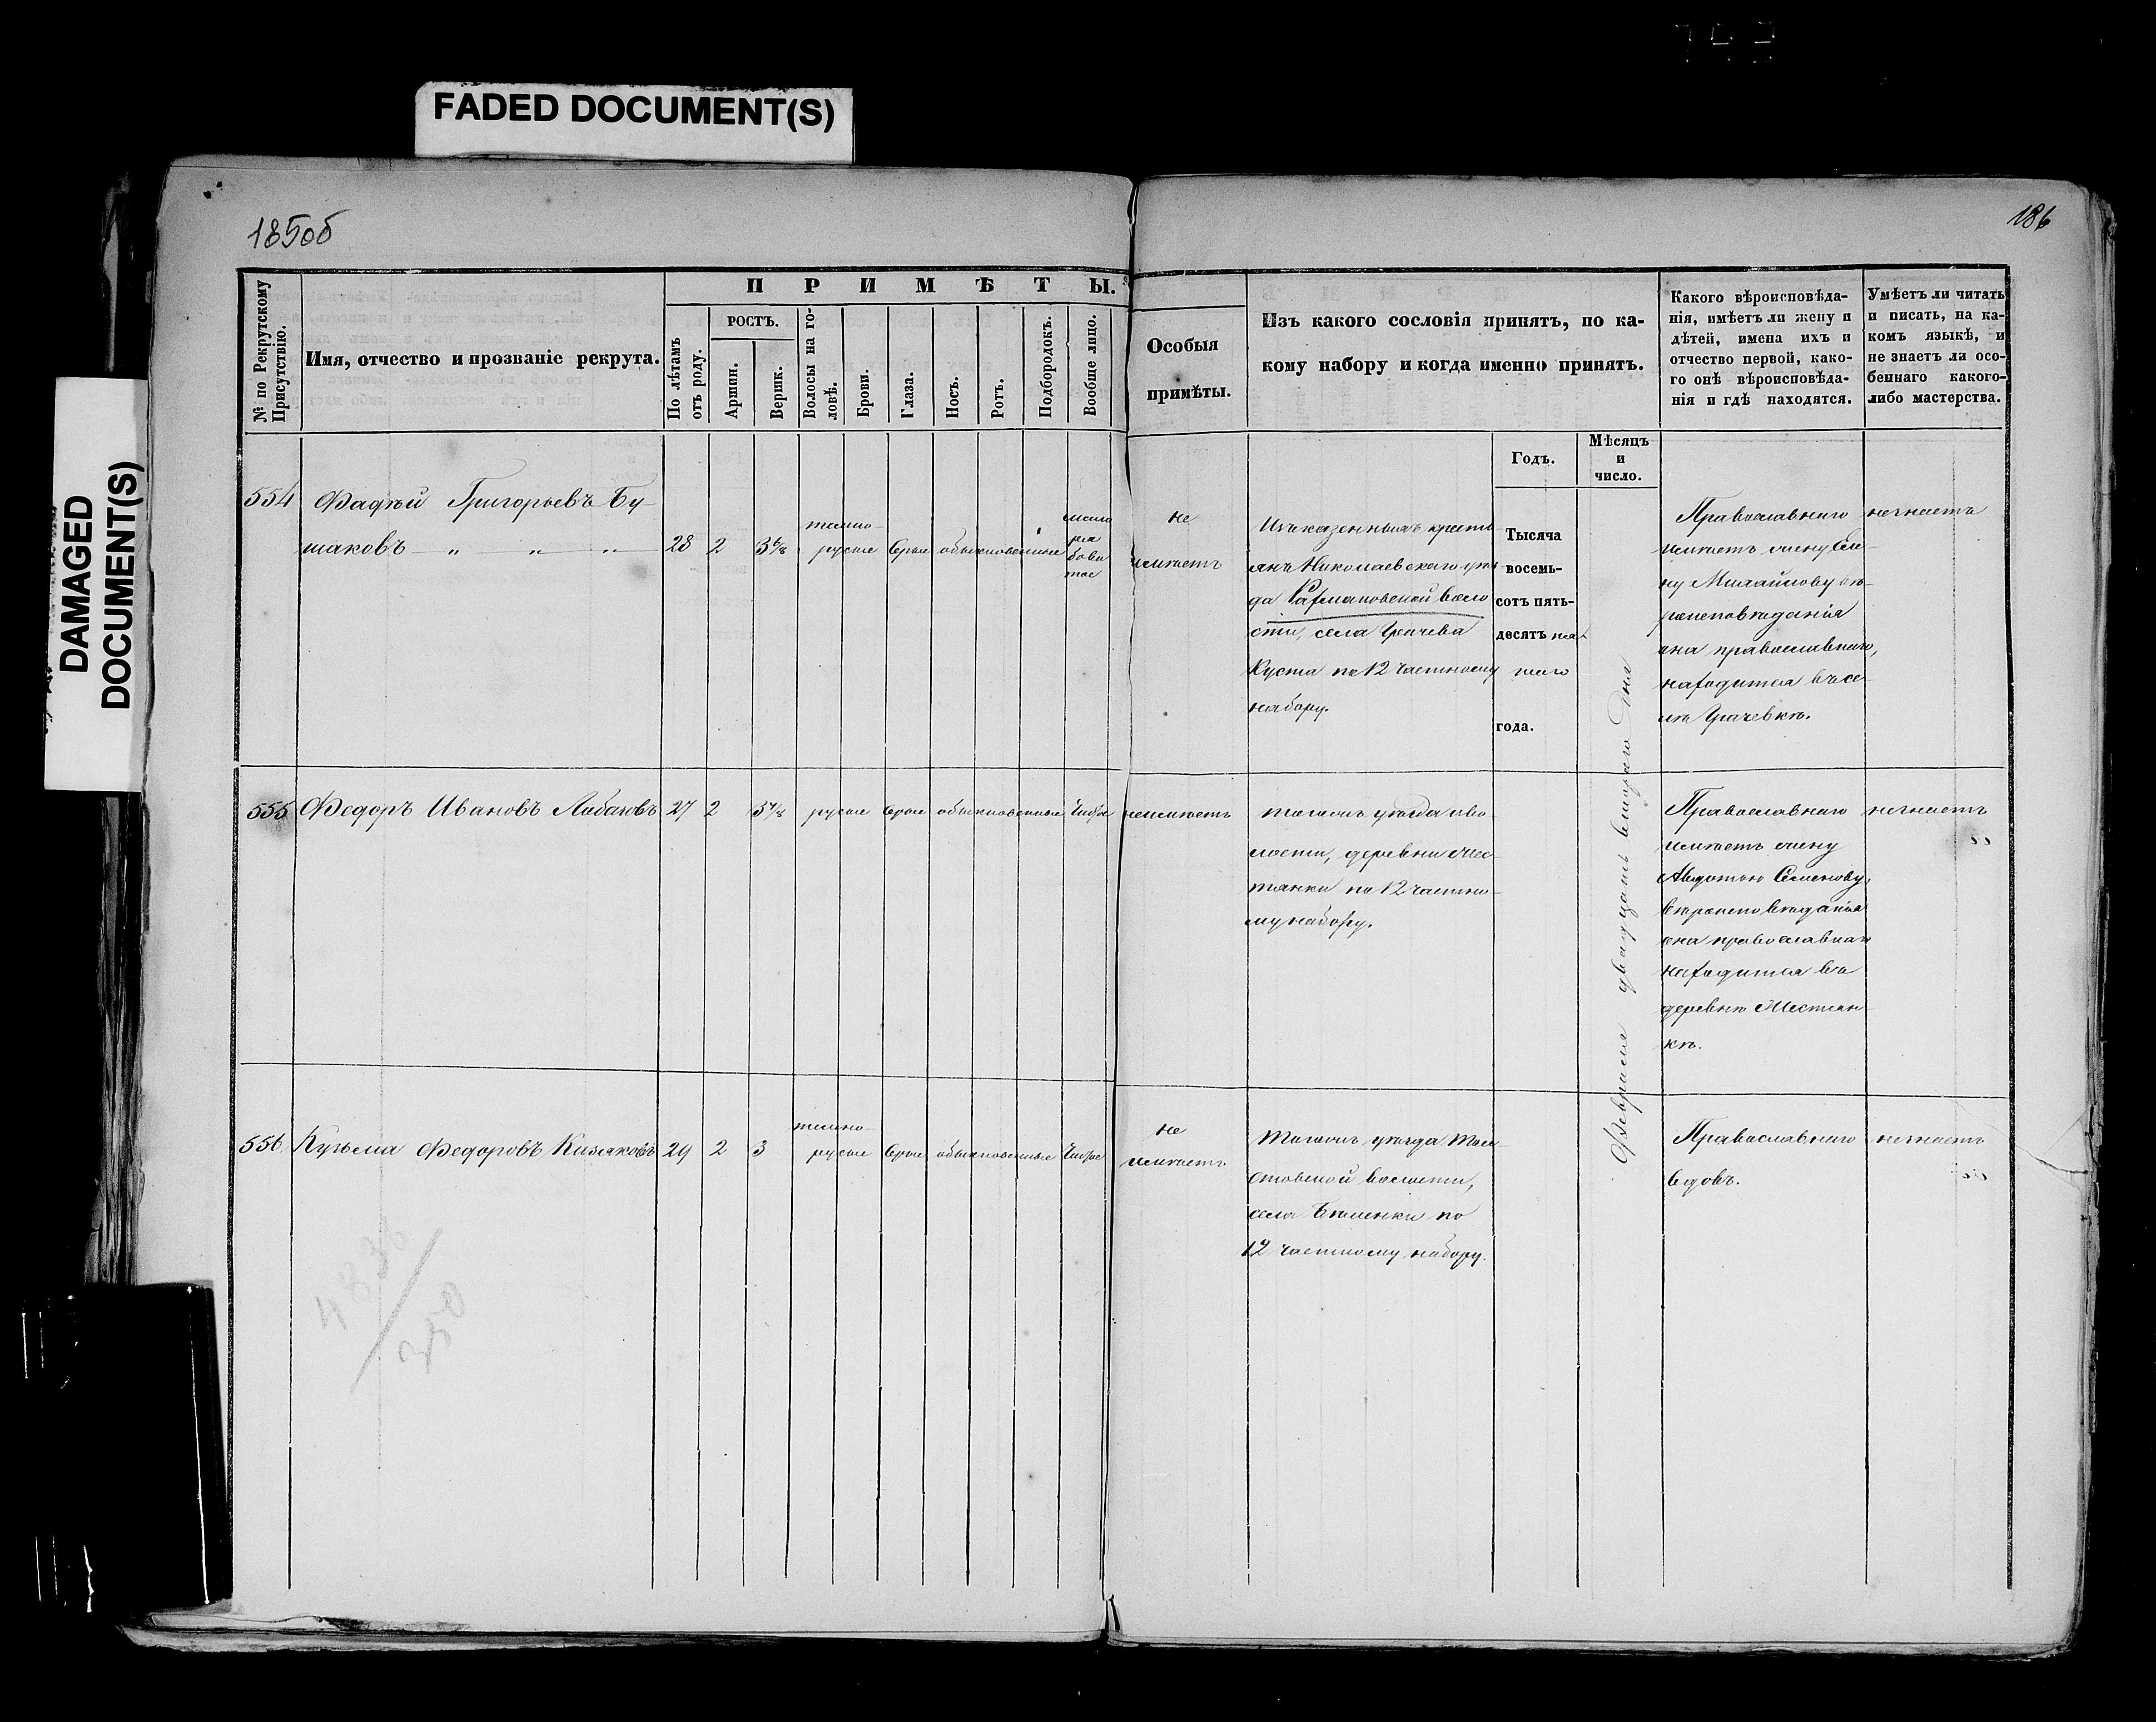 FADED DOCUMENT(S)
DAMAGED
DOCUMENT(S)
185об
186
№ по Рекрутскому
Присутствію.
Имя, отчество и прозваніе рекрута.
ПРИМѢТЫ.
По лѣтамъ
отъ роду.
РОСТЪ.
Аршин.
Вершк.
Волосы на го-
ловѣ.
Брови.
Глаза.
Носъ.
Ротъ.
Подбородокъ.
Вообще лицо.
Особыя
примѣты.
Изъ какого сословія принятъ, по ка-
кому набору и когда именно принятъ.
Какого вѣроисповѣда-
нія, имѣетъ ли жену и
дѣтей, имена ихъ и
отчество первой, како-
го онѣ вѣроисповѣда-
нія и гдѣ находятся.
Умѣетъ ли читать
и писать, на ка-
комъ языкѣ, и
не знаетъ ли осо-
беннаго какого-
либо мастерства.
Годъ.
Мѣсяцъ
и
число.
554
Фадѣй Григорьевъ Бу-
шаковъ
28
2
3 6/8
темно-
русые
сѣрые
обыкновенные
не
имѣетъ
Изъ казенныхъ кресть-
янъ Николаевскаго уѣз-
да Рахмановской воло
сти, села Грачева
Куста по 12 частному
набору.
Тысяча
восемь-
сотъ пять-
десятъ пя
таго
года.
Февраля двадцать втораго дня
Православнаго
имѣетъ жену
ну Михайлову вѣ-
роисповѣданія
она православнаго,
находится въ се-
лѣ Грачевкѣ.
незнаетъ
555
Федоръ Ивановъ Лобаковъ
27
2
русые
сѣрые
обыкновенные
чистое
неимѣетъ
тогожъ уѣзда
лости, деревни Мес-
тянки по 12 частно-
му набору.
Православнаго
имѣетъ жену
Авдотью Семенову,
вѣроисповѣданія
она православная
находится въ
деревнѣ Местян
кѣ.
незнаетъ
556
Кузьма Федоровъ Кизяковъ
29
2
3
темно-
русые
сѣрые
обыкновенные
чистое
не
имѣетъ
тогожъ уѣзда
стовской волости,
села
по
12 частному набору.
Православнаго
вдовъ.
незнаетъ